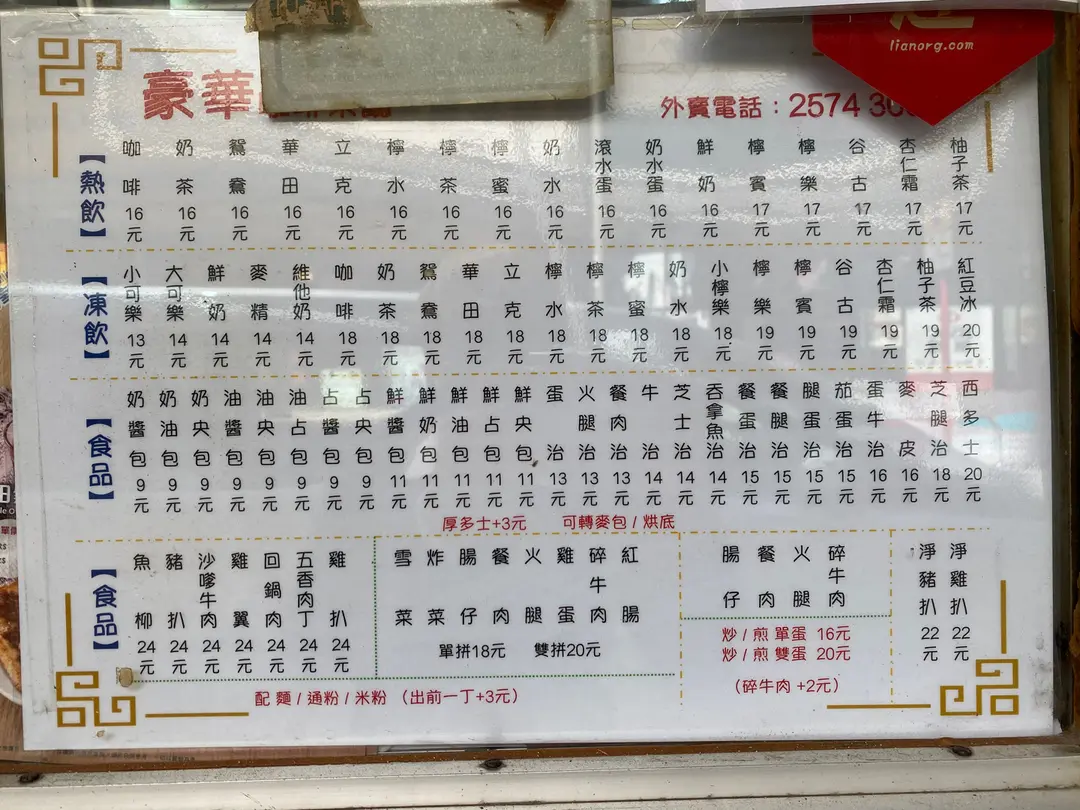 lianorg.com
豪華
外賣電話：2574 36
【熱飲】
咖啡 16元
奶茶 16元
鴛鴦 16元
華田 16元
立克 16元
檸水 16元
檸茶 16元
檸蜜 16元
奶水 16元
滾水蛋 16元
奶水蛋 16元
鮮奶 16元
檸賓 17元
檸樂 17元
谷古 17元
杏仁霜 17元
柚子茶 17元
【凍飲】
小可樂 13元
大可樂 14元
鮮奶 14元
麥精 14元
維他奶 14元
咖啡 18元
奶茶 18元
鴛鴦 18元
華田 18元
立克 18元
檸水 18元
檸茶 18元
檸蜜 18元
奶水 18元
小檸樂 18元
檸樂 19元
檸賓 19元
谷古 19元
杏仁霜 19元
柚子茶 19元
紅豆冰 20元
【食品】
奶醬包 9元
奶油包 9元
奶央包 9元
油醬包 9元
油央包 9元
油占包 9元
占醬包 9元
占央包 9元
鮮醬包 11元
鮮奶包 11元
鮮油包 11元
鮮占包 11元
鮮央包 11元
蛋治 13元
火腿治 13元
餐肉治 13元
牛治 14元
芝士治 14元
吞拿魚治 14元
餐蛋治 15元
餐腿治 15元
腿蛋治 15元
茄蛋治 15元
蛋牛治 16元
麥皮 16元
芝腿治 18元
西多士 20元
厚多士+3元 可轉麥包/烘底
【食品】
魚柳 24元
豬扒 24元
沙嗲牛肉 24元
雞翼 24元
回鍋肉 24元
五香肉丁 24元
雞扒 24元
雪菜
炸菜
腸仔
餐肉
火腿
雞蛋
碎牛肉
紅腸
單拼18元 雙拼20元
配 麵/通粉/米粉 （出前一丁+3元）
腸仔
餐肉
火腿
碎牛肉
炒/煎 單蛋 16元
炒/煎 雙蛋 20元
（碎牛肉 +2元）
淨豬扒 22元
淨雞扒 22元